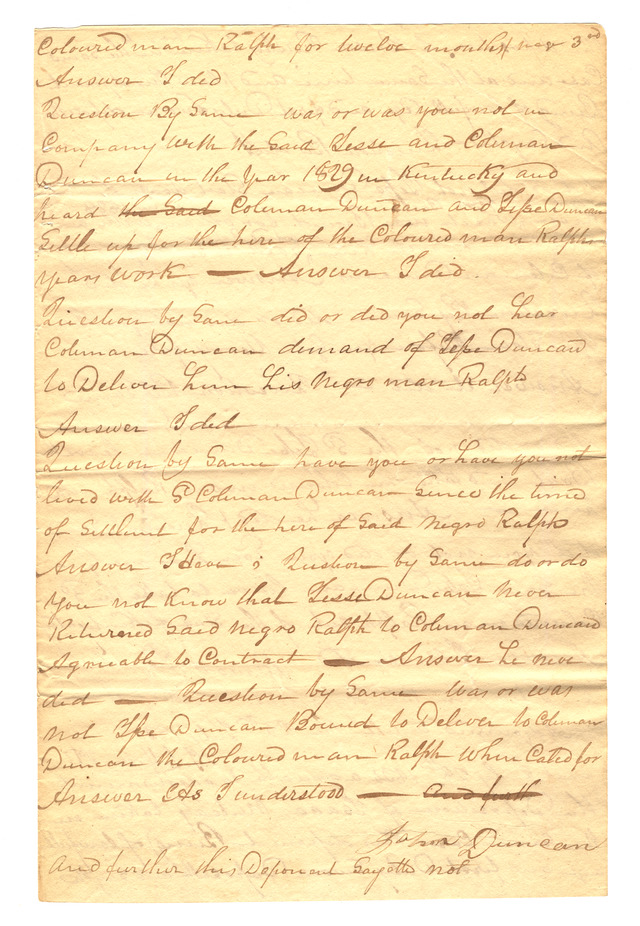 Coloured man Ralph for twelve months 3rd
Answer I did
Question By Same was or was you not in
Company with the Said Jesse and Coleman
Duncan in the Year 1829 in Kentucky and
heard the Said Coleman Duncan and Jesse Duncan
Settle up for the hire of the Coloured man Ralphs
years work — Answer I did.
Question by Same did or did you not hear
Coleman Duncan demand of Jesse Duncan
to Deliver him his Negro man Ralph
Answer I did
Question by Same have you or have you not
lived with Sd Coleman Duncan Sence the time
of Settlment for the hire of Said Negro Ralph
Answer I Have ; Question by Same do or do
You not Know that Jesse Duncan Never
Returned Said Negro Ralph to Coleman Duncan
Agreable to Contract — Answer he neve
did — Question by Same was or was
not Jesse Duncan Bound to Deliver to Coleman
Duncan the Coloured man Ralph When Caled for
Answer As I understood — and furth
John Duncan
And further this Deponent Sayeth not